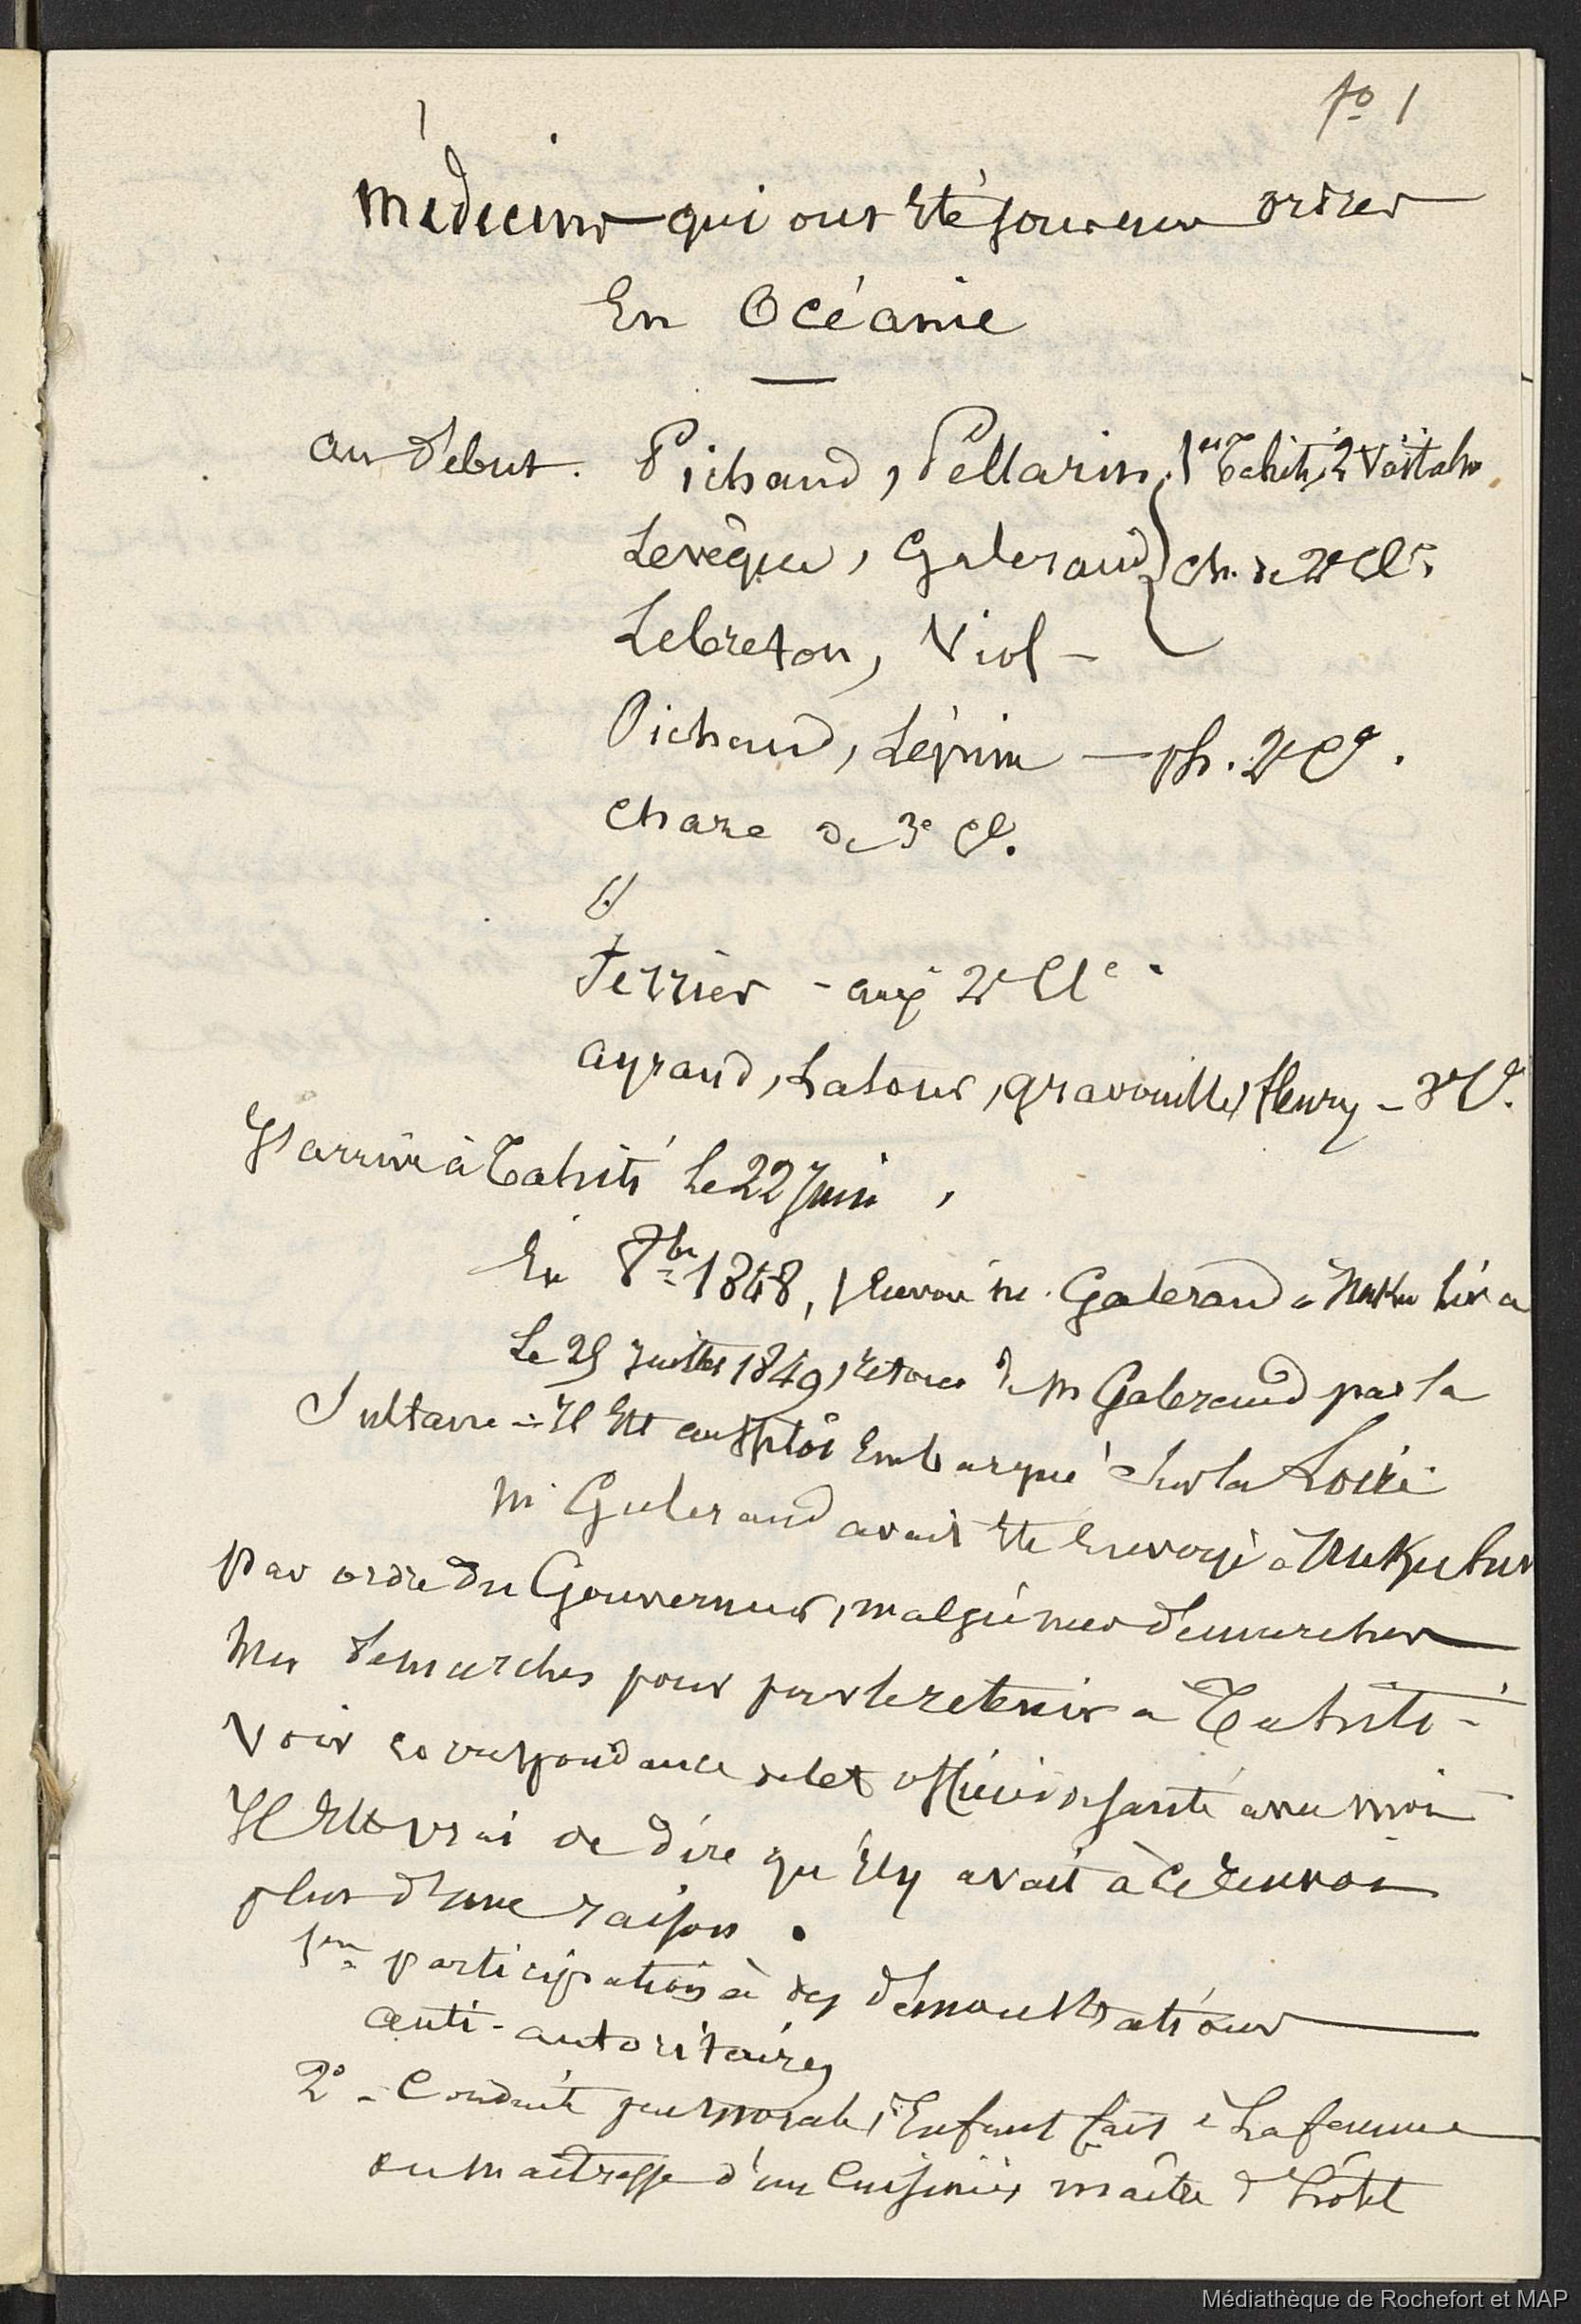 fo 1
Médecins qui ont Eté sous mes ordres
En Océanie
au Debut. Pichaud, Pellarin, 1er Tahiti, 2
Levèque, Galeraud ch. de 2e Cl.
Lebreton, Viol -
Pichaud, Lépine - ph. 2e Cl.
chaze de 3e Cl.
ferrier - aux 2e Cle.
ayraud, Latour, gravouille, fleury - 3e Cl.
J'arrive à Tahiti Le 22 Juin,
En 8bre 1848, M. Galeraud à Nuku hiva
Le 25 Juillet 1849, retour de M Galeraud par la
Sultane - Il Est aussitôt Embarqué sur la Loire
M. Galeraud avait Eté Envoyé à Nukuhiva
par ordre du Gouverneur, malgré mes demarches
Mes demarches pour le retenir à Tahiti -
Voir correspondance de cet officier de santé avec moi
Il Est vrai de dire qu'Il y avait à ce renvoi
plus d'une raison.
1re participation à des démonstrations
anti-autoritaires
2o - Conduite peu morale, Enfant fait à La femme
ou maitresse d'un Cuisinier maître d'hôtel
Médiathèque de Rochefort et MAP